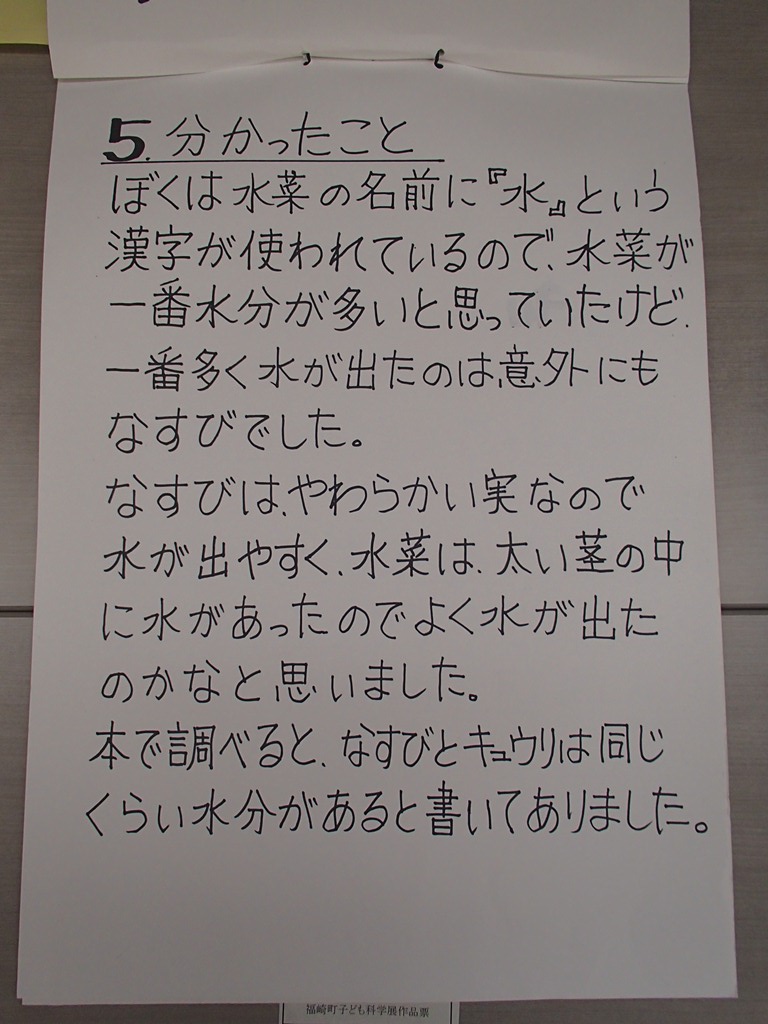 5. 分かったこと
ぼくは水菜の名前に『水』という
漢字が使われているので、水菜が
一番水分が多いと思っていたけど、
一番多く水が出たのは、意外にも
なすびでした。
なすびは、やわらかい実なので
水が出やすく、水菜は、太い茎の中
に水があったのでよく水が出た
のかなと思いました。
本で調べると、なすびとキュウリは同じ
くらい水分があると書いてありました。
福崎町子ども科学展作品票